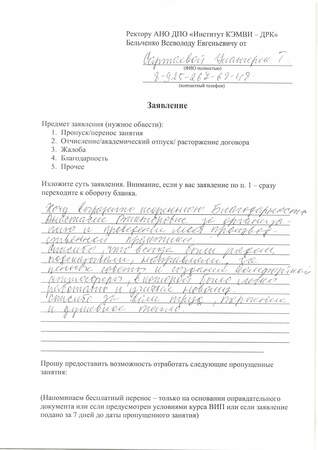 Ректору АНО ДПО «Институт КЭМВИ – ДРК»
Бельченко Всеволоду Евгеньевичу от
(ФИО полностью)
8-925-267-69-118
(контактный телефон)
Заявление
Предмет заявления (нужное обвести):
1. Пропуск/перенос занятия
2. Отчисление/академический отпуск/ расторжение договора
3. Жалоба
4. Благодарность
5. Прочее
Изложите суть заявления. Внимание, если у вас заявление по п. 1 – сразу
переходите к обороту бланка.
Хочу выразить искреннюю благодарность
Анастасии Викторовне за организа-
цию и проведение моей производ-
ственной практики.
Спасибо, что всегда были рядом
подсказывали, направляли, за
ценные советы и создание комфортной
атмосферы, в которой было легко
работать и учиться новому.
Спасибо за Ваш труд, терпение
и душевное тепло.
Прошу предоставить возможность отработать следующие пропущенные
занятия:
(Напоминаем бесплатный перенос – только на основании оправдательного
документа или если предусмотрен условиями курса ВИП или если заявление
подано за 7 дней до даты пропущенного занятия)